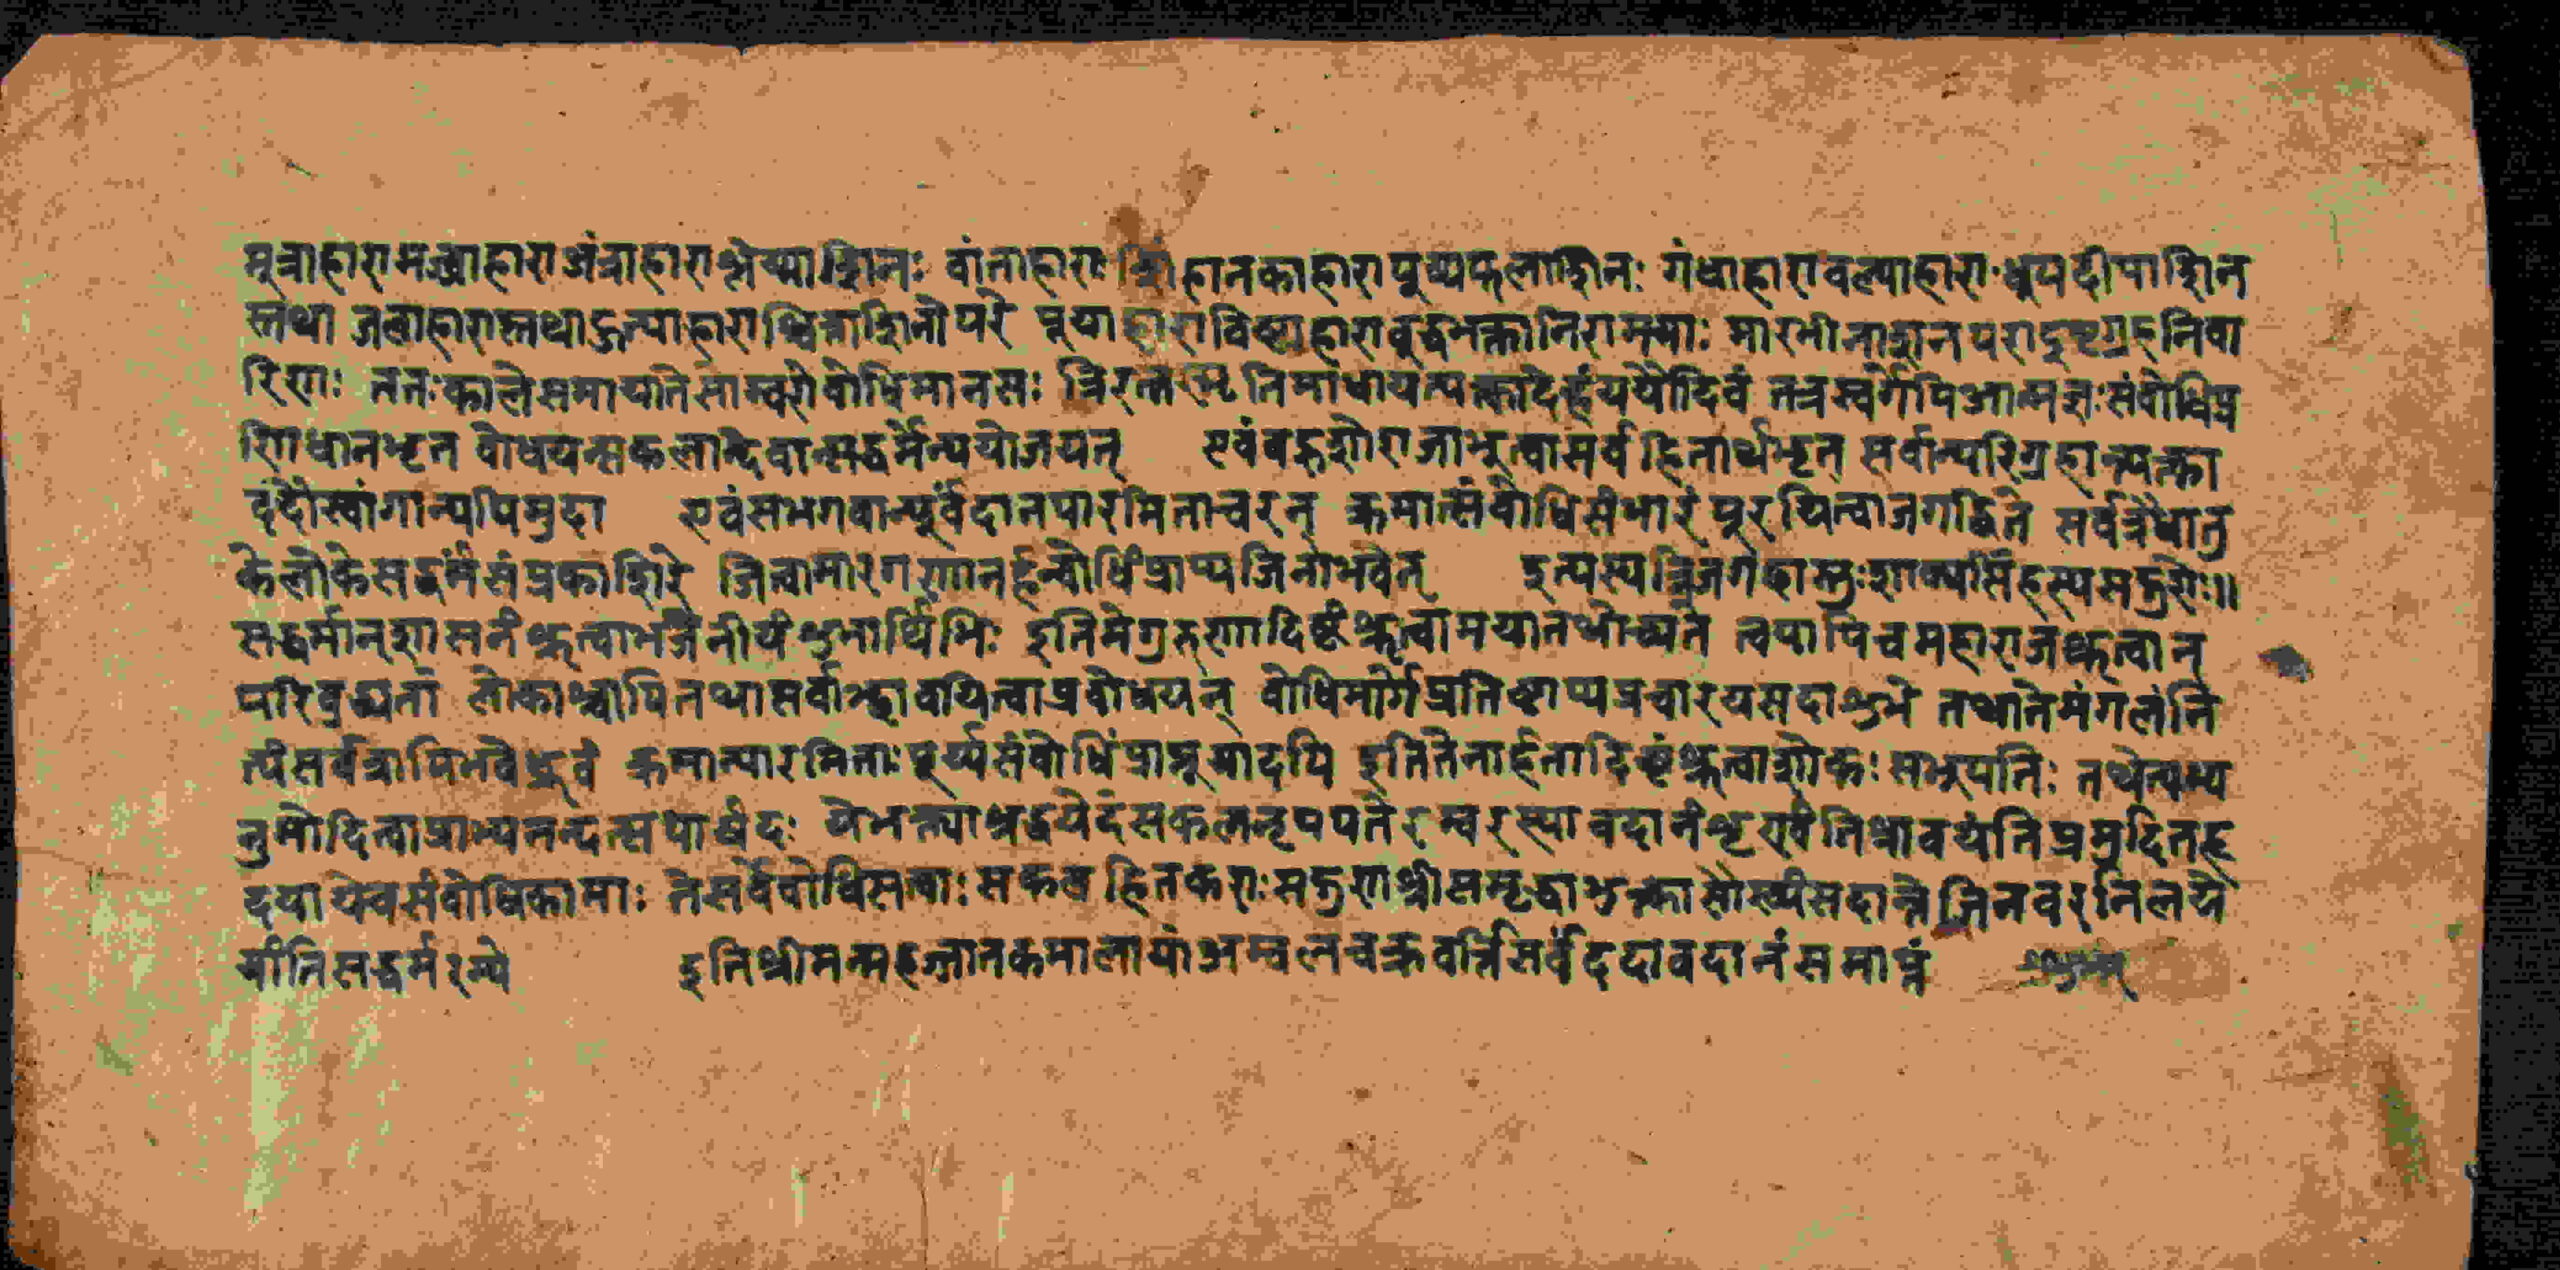 मूत्राहारामज्जाहाराअंत्राहाराश्लेष्माशिनः वांताहारा सिंहानकाहारापूष्पफलाशिनः गंधाहारावल्याहारा धूपदीपाशिन
स्तथा जलाहारास्तथाऽन्याहाराश्चित्ताशिनोपरे पूयाहाराविष्ठाहाराबुद्धभक्तानिरामयाः मारभीनाशनपरादुष्टग्रहनिवा
रिणः ततःकालेसमायातेसाम्वरोवोधिमानसः त्रिरत्नस्मृतिमाधायत्यक्त्वादेहंययौदिवं तत्रस्वर्गेपिआत्मज्ञःसंवोधिप्र
णिधानभृत वोधयन्सकलान्देवान्सद्धर्मेन्ययोजयन् एवंबहुशोराजाभूत्वासर्वहितार्थभृत् सर्वान्परिग्रहान्त्यक्त्वा
ददौस्वांगान्यपिमुदा एवंसभगवान्पूर्वंदानपारमिताचरन् क्रमात्संवोधिसंभारं पूरयित्वाजगद्धिते सर्वत्रैधातु
केलोकेसद्धर्मंसंप्रकाशिरे जित्वामारगणानर्हन्वोधिंप्राप्यजिनोभवेत् इत्यस्यत्रिजगच्छास्तुःशाक्यसिंहस्यमद्गुरोः॥
सद्धर्मानशासनंश्रुत्वाभजनीयंशुभार्थिभिः इतिमेगुरुणादिष्टंश्रुत्वामयातथोच्यते त्वयापिचमहाराजश्रुत्वान्
परिवुद्ध्यतां लोकाश्चापितथासर्वाञ्छ्रावयित्वाप्रवोधयन् वोधिमार्गेप्रतिष्ठाप्यप्रचारयसदाशुभे तथातेमंगलंनि
त्यंसर्वत्रापिभवेद्ध्रुवं क्रमात्पारमिताःपूर्य्यसंवोधिंप्राप्नूयादपि इतितेनार्हतादिष्टंश्रुत्वाशोकःसभूपतिः तथेत्यभ्य
नुमोदित्वाप्राभ्यनन्दत्सपार्षदः येभक्त्याश्रद्धयेदंसकलनृपपतेरम्वरस्यावदानंशृण्वंतिश्रावयंतिप्रमुदितहृ
दयायेवसंवोधिकामाः तेसर्वेवोधिसत्वाःसकलहितकराःसद्गुणाश्रीसमृद्धाभुक्त्वासौख्यंसदान्तेजिनवरनिलये
यांतिसद्धर्मरम्ये इतिश्रीमन्महज्जातकमालायांअम्वलचक्रवर्त्तिसर्वंददावदानंसमाप्तं शुभम्